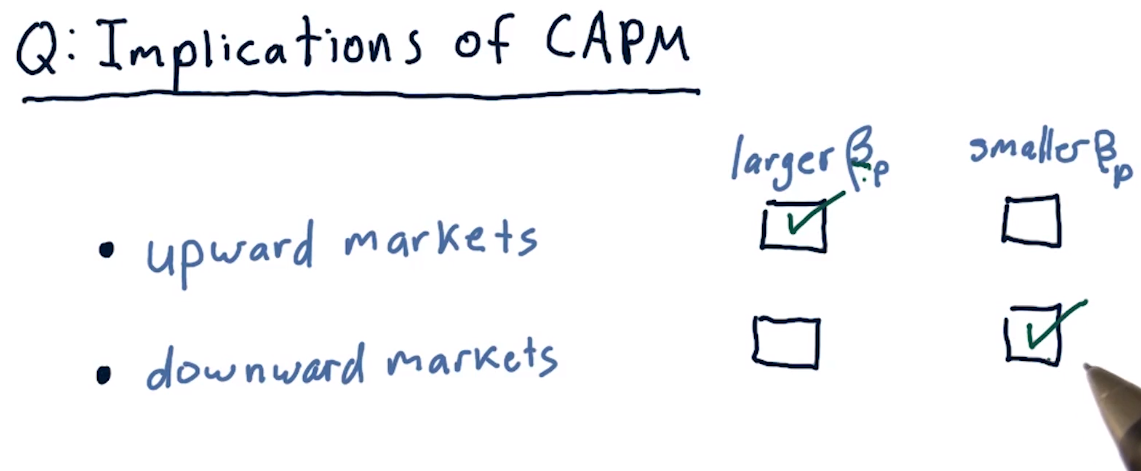 Q: Implications of CAPM
larger βp smaller βp
• upward markets
• downward markets